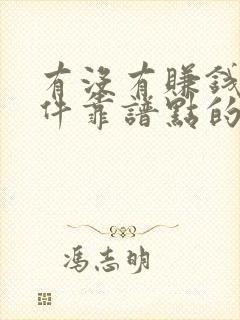 有没有賺錢
件靠譜點的
馮志明